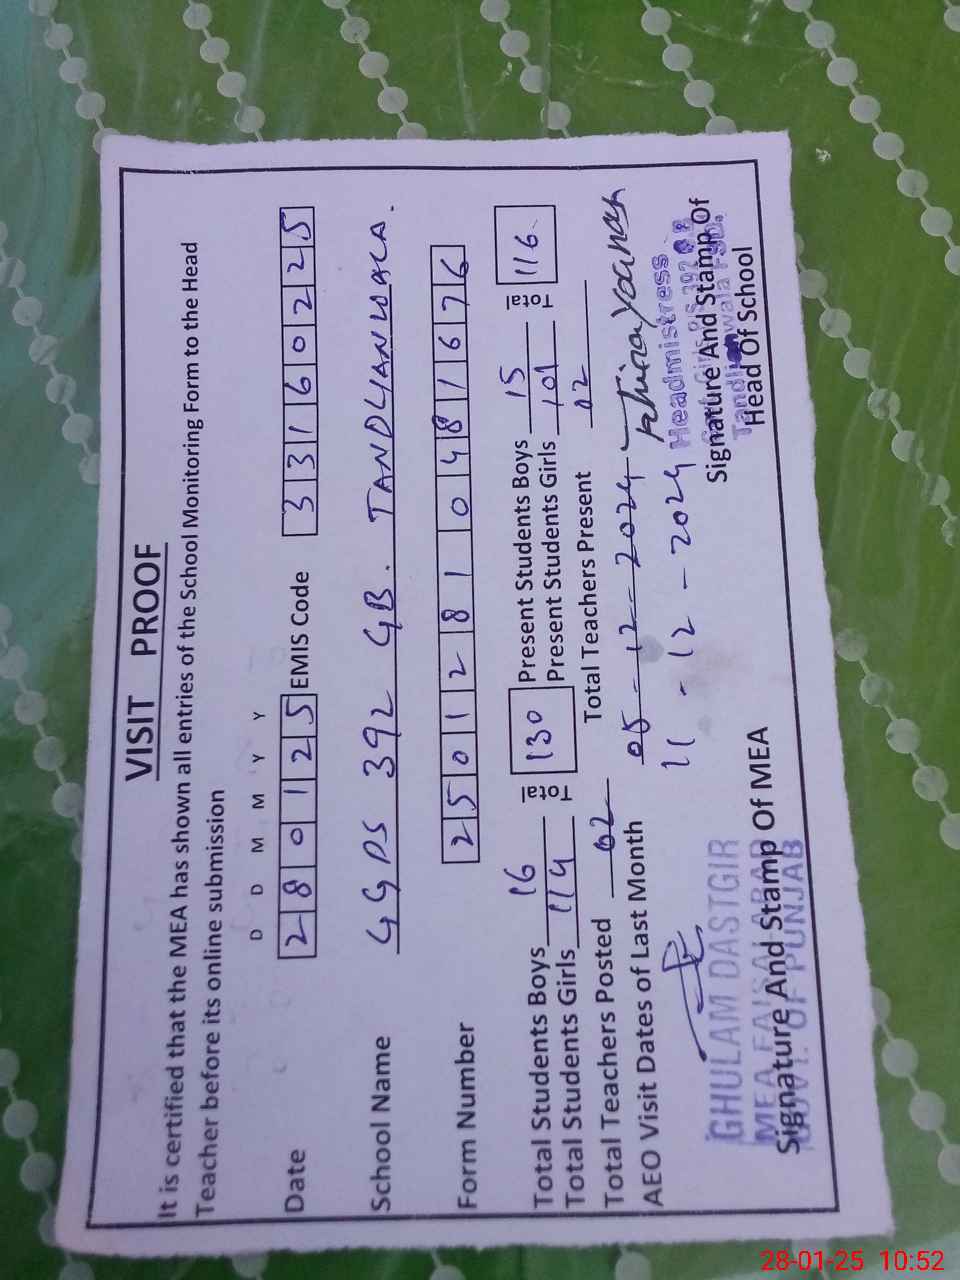 VISIT PROOF
It is certified that the MEA has shown all entries of the School Monitoring Form to the Head
Teacher before its online submission
D D M M Y Y
Date 280125 EMIS Code 33160225
School Name GGPS 392 GB. TANDLIANWALA.
Form Number 2501281048 1676
Total Students Boys 16 Total 130 Present Students Boys 15 Total 116.
Total Students Girls 114 Present Students Girls 101
Total Teachers Posted 02 Total Teachers Present 02
AEO Visit Dates of Last Month 05-12-2024
11-12-2024
GHULAM DASTGIR
MEA FAISALABAD
GOVT. OF PUNJAB
Signature And Stamp Of MEA
Headmistress
Signature And Stamp Of
Head Of School
28-01-25 10:52